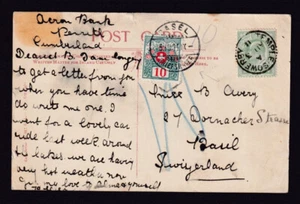 Acron Bank
Penrith
Cumberland
POST CARD
Dearest B. I am longing
to get a letter from you
when you have time
do write me one. I
went for a lovely car
ride last week around
the lakes we are having
very hot weather now
my love
BASEL
10
TEMPLE SOWERBY
Miss B Avery
27 Dornacher Strasse
Basil
Switzerland